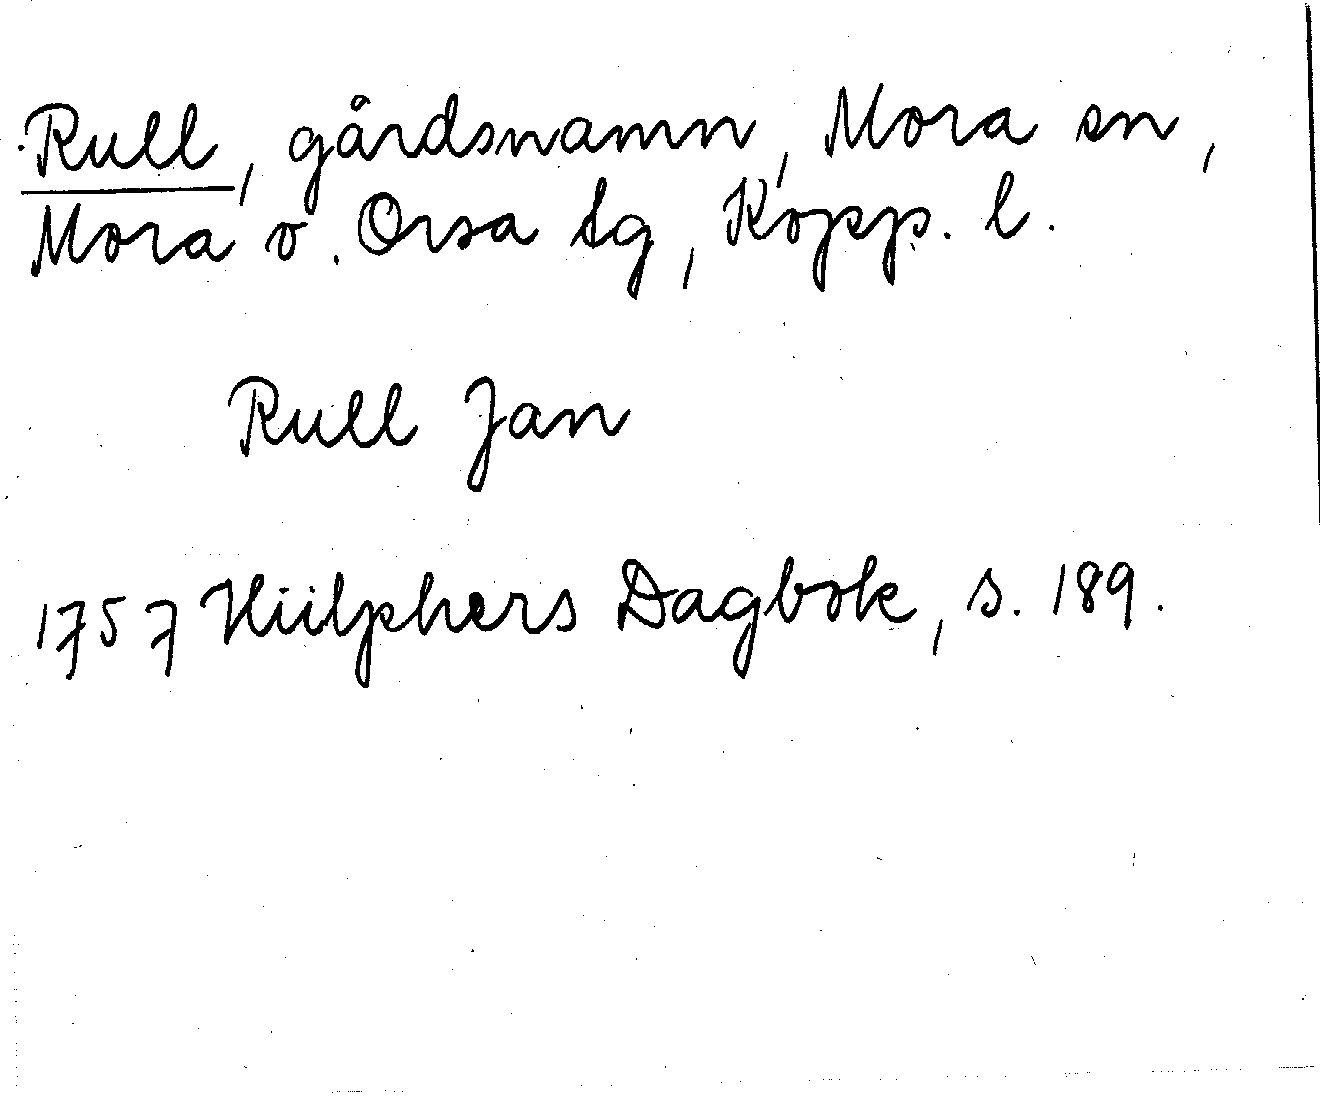 Rull, gårdsnamn, Mora sn,
Mora o. Orsa tg, Kopp. l.
Rull Jan
1757 Hülphers Dagbok, s. 189.